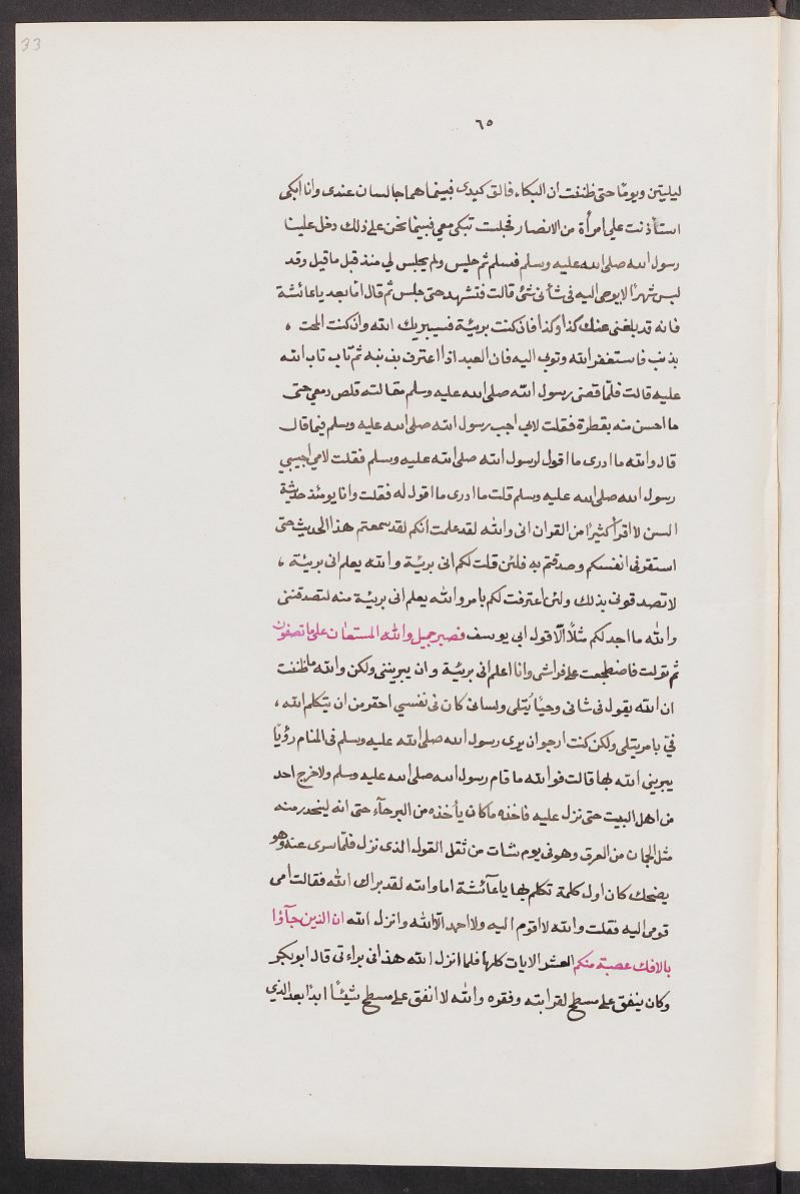 33
٦٥
ليلتين ويومًا حتى ظننت ان البكاء فالق كبدى فبينما هما جالسان عندى وانا ابكى
استأذنت على امرأة من الانصار فجلست تبكى معى فبينما نحن على ذلك دخل علينا
رسول الله صلى الله عليه وسلم فسلم ثم جلس ولم يجلس لي منذ قبل ما قيل وقد
لبس شهرًا لا يوحى اليه فى شأنى شئ قالت فتشهد حتى جلس ثم قال امّا بعد يا عائشة
فانه قد بلغنى عنك كذا وكذا فان كنت بريئة فسيبريك الله وان كنت المت ،
بذنب فاستغفر الله وتوبى اليه فان العبد اذا اعترف بذنبه ثمّ تاب تاب الله
عليه قالت فلمّا قضى رسول الله صلى الله عليه وسلم مقالته قلص دمعى حتى
ما احسن منه بقطرة فقلت لابي اجب رسول الله صلى الله عليه وسلم فيما قال
قال والله ما ادرى ما اقول لرسول الله صلى الله عليه وسلم فقلت لامى اجيبي
رسول الله صلى الله عليه وسلم قلت ما ادرى ما اقول له فقلت وانا يومئذ حديثة
السن لا اقرأ كثيرًا من القران انى والله لقد علمت انكم لقد سمعتم هذا الحديث حتى
استقر فى انفسكم وصدقتم به فلئن قلت لكم انى بريئة والله يعلم انى بريئة ،
لا تصدقونى بذلك ولئن اعترفت لكم بامر والله يعلم انى بريئة منه لتصدقننى
والله ما اجد لكم مثلًا الّا قول ابى يوسف فصبر جميل والله المستعان على ما تصفون
ثم تولت فاضطجعت على فراشى وانا اعلم انى بريئة وان يبريننى ولكن والله ما ظننت
ان الله يقول فى شانى وحيًا يُتلى ولسانى كان فى نفسي احقر من ان يتكلم الله ،
فيّ بامر يتلى ولكن كنت ارجوا ن يرى رسول الله صلى الله عليه وسلم فى المنام رؤيًا
يبرينى الله بها قالت فوالله ما قام رسول الله صلى الله عليه وسلم ولا خرج احد
من اهل البيت حتى نزل عليه فاخذه ما كان يأخذه من البرحآء حتى انه لينحدر منه
مثل الجمان من العرق وهو فى يوم شات من ثقل القول الذى نزل فلمّا سرى عنه وهو
يضحك كان اول كلمة تكلم بها يا عآئشة اما والله لقد براك الله فقالت امى
قومى اليه فقلت والله لا اقوم اليه ولا احمد الّا الله وانزل الله ان الذين جآؤا
بالافك عصبة منكم العشر الايات كلها فلما انزل الله هذا فى براءتى قال ابو بكر
وكان ينفق على مسطح لقرابته وفقره والله لا انفق على مسطح شيئًا ابدًا بعد الذي